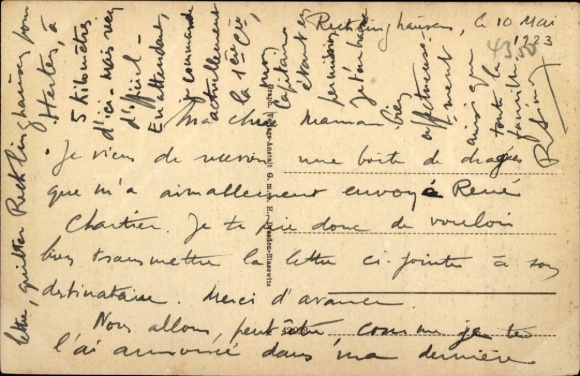 Recklinghausen, le 10 Mai
1923
43,50
Ma chère Maman
Je viens de recevoir une boîte de dragées
que m'a aimablement envoyé René
Chartier. Je te prie donc de vouloir
bien transmettre la lettre ci-jointe à son
destinataire. Merci d'avance.
Nous allons, peut être comme je te
l'ai annoncé dans ma dernière
lettre, quitter Recklinghausen pour
Herten, à
5 kilomètres
d'ici - mais rien
d'officiel -
En attendant,
je commande
actuellement
la 1ère Cie,
mon
capitaine
étant en
permission
je t'embrasse
bien
affectueuse
ment
ainsi que
toute la
famille
Graph. Verlags-Anstalt G. m. b. H., Dresden-Blasewitz